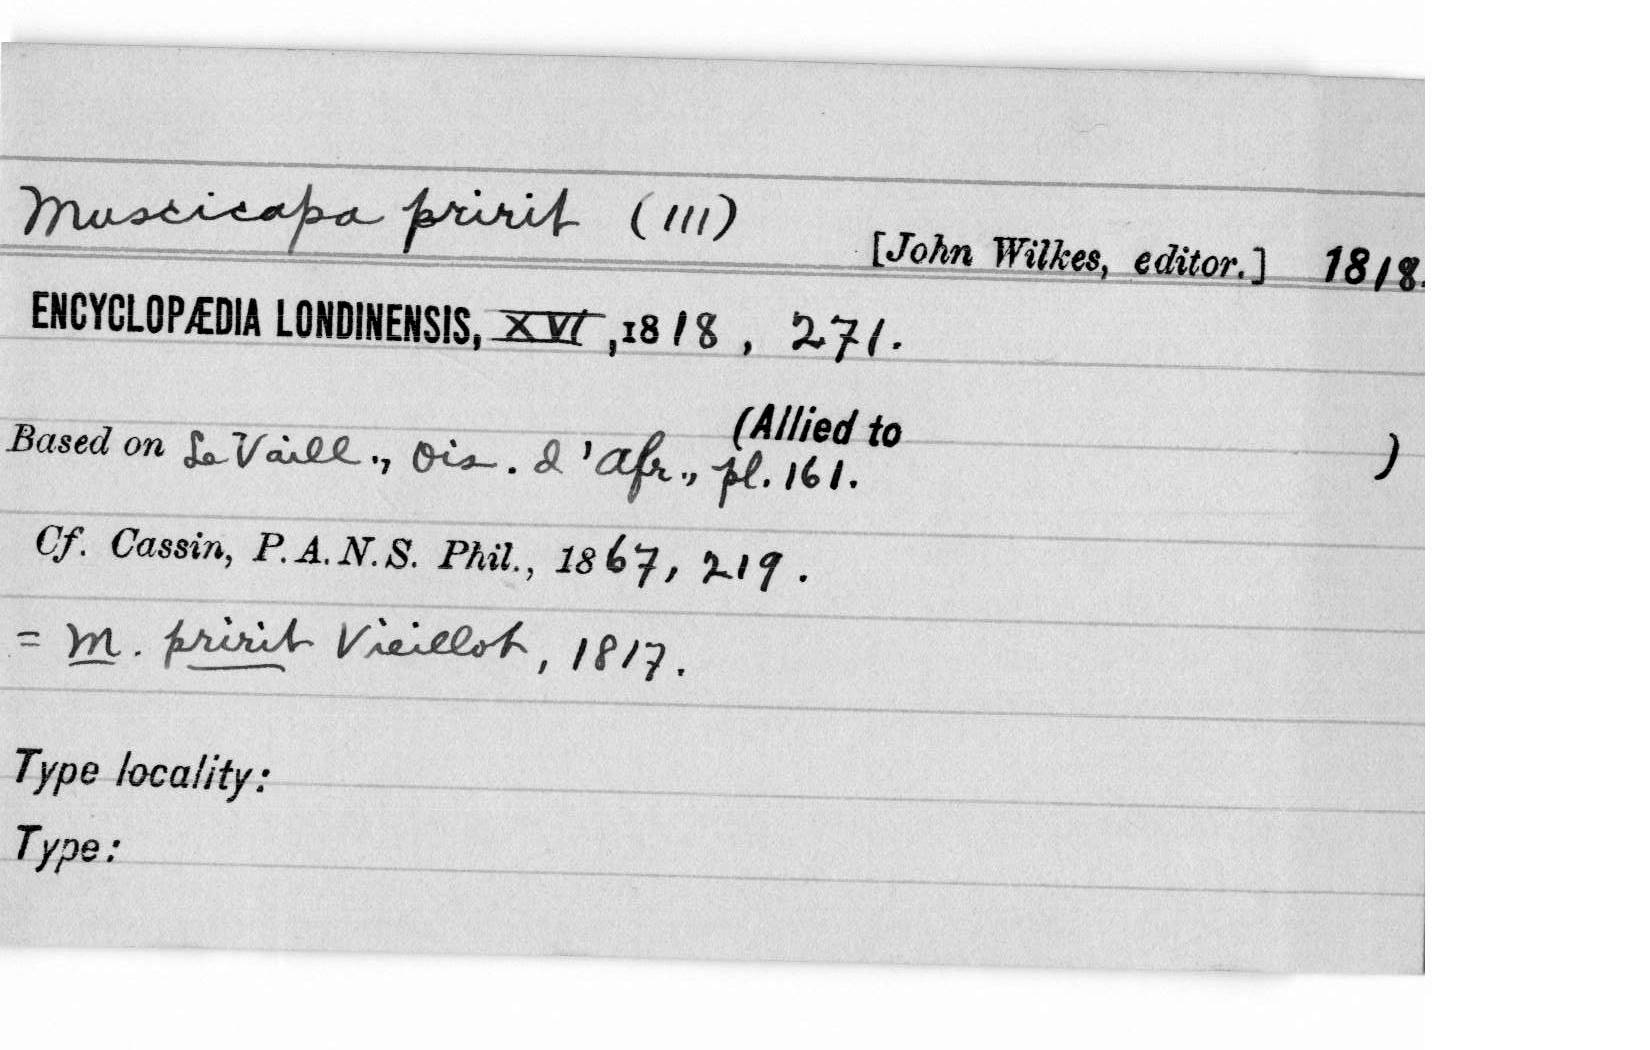 Muscicapa pririt (111)
[John Wilkes, editor.] 1818.
ENCYCLOPÆDIA LONDINENSIS, XVI, 1818, 271.
(Allied to )
Based on Le Vaill., Ois. d'Afr., pl. 161.
Cf. Cassin, P.A.N.S. Phil., 1867, 219.
= M. pririt Vieillot, 1817.
Type locality:
Type: